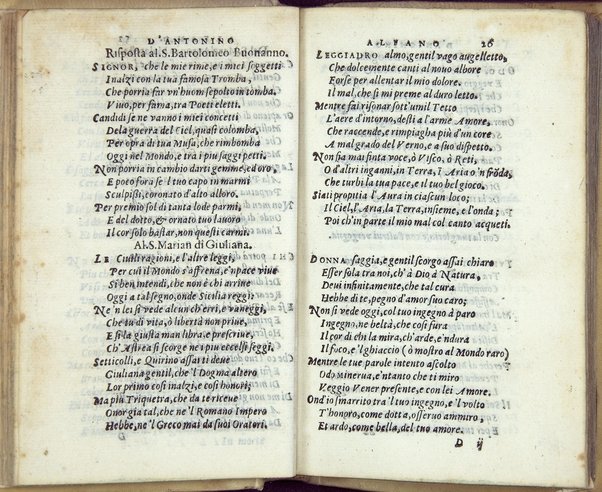 D'ANTONINO
Risposta al.S.Bartolomeo Buonanno.
SIGNOR, che le mie rime, e i miei soggetti
Inalzi con la tua famosa Tromba,
Che porria far vn'huom sepolto in tomba,
Viuo, per fama, tra Poeti eletti.
Candidi se ne vanno i miei concetti
De la guerra del Ciel, quasi colomba,
Per opra di tua Musa, che rimbomba
Oggi nel Mondo, e tra i piu saggi petti.
Non porria in cambio darti gemme, ed oro,
E poco fora se 'l tuo capo in marmi
Sculpissi, coronato d'alto alloro.
Per premio sol di tanta lode parmi,
E del dotto, & ornato tuo lauoro
Il cor solo bastar, non questi carmi.
Al.S.Marian di Giuliana.
LE Ciuili ragioni, e l'altre leggi,
Per cui il Mondo s'affrena, e'n pace viue
Si ben intendi, che non è chi arriue
Oggi a tal segno, onde Sicilia reggi.
Ne'n lei si vede alcun ch'erri, e vaneggi,
Che tu di vita, ò libertà non priue,
E si la giusta man libra, e prescriue,
Ch'Astrea si scorge ne i piu eccelsi seggi.
Setticolli, e Quirino assai ti deue
Giuliana gentil, che'l Dogma altero
Lor primo così inalzi, e così honori;
Ma piu Triquetra, che da te riceue
Onor gia tal, che ne'l Romano Impero
Hebbe, ne'l Greco mai da suoi Oratori.
D
ALFANO 26
LEGGIADRO almo, gentil vago augelletto,
Che dolcemente canti al nouo albore
Forse per allentar il mio dolore.
Il mal, che sì mi preme al duro letto.
Mentre fai risonar sott'umil Tetto
L'aere d'intorno, desti a l'arme Amore,
Che raccende, e rimpiagha più d'un core,
A mal grado del Verno, e a suo dispetto.
Non sia mai finta voce, ò Visco, ò Reti,
O d'altri inganni, in Terra, ì Aria o'n frōda,
Che turbi la tua pace, e il tuo bel gioco.
Siati propitia l'Aura in ciascun loco;
Il Ciel, l'Aria, la Terra, insieme, e l'onda;
Poi ch'in parte il mio mal col canto acqueti.
DONNA saggia, e gentil scorgo assai chiaro
Esser sola tra noi, ch'à Dio à Natura,
Deui infinitamente, che tal cura
Hebbe di te, pegno d'amor suo caro;
Non si vede oggi, col tuo ingegno à paro
Ingegno, ne beltà, che così fura
Il cor di chi la mira, ch'arde, e'ndura
Il foco, e'l ghiaccio (ò mostro al Mondo raro)
Mentre le tue parole intento ascolto
Odo Minerua, e'ntanto che ti miro
Veggio Vener presente, e con lei Amore.
Ond'io smarrito tra l'tuo ingegno, e 'l volto
T'honoro, come dotta, osseruo ammiro,
Et ardo, come bella, del tuo amore.
D ij